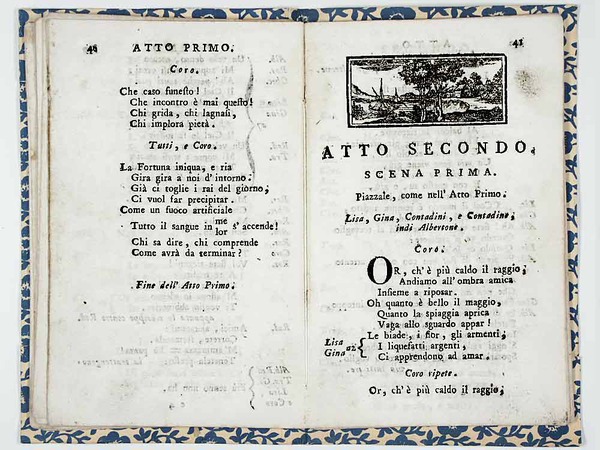 40 ATTO PRIMO.
Coro.
Che caso funesto!
Che incontro è mai questo!
Chi grida, chi lagnasi,
Chi implora pietà.
Tutti, e Coro.
La Fortuna iniqua, e ria
Gira gira a noi d'intorno:
Già ci toglie i rai del giorno;
Ci vuol far precipitar.
Come un fuoco artificiale
Tutto il sangue in me lor s'accende!
Chi sa dire, chi comprende
Come avrà da terminar?
Fine dell'Atto Primo.
41
ATTO SECONDO.
SCENA PRIMA.
Piazzale, come nell'Atto Primo.
Lisa, Gina, Contadini, e Contadine;
indi Albertone.
Coro.
OR, ch'è più caldo il raggio;
Andiamo all'ombra amica
Insieme a riposar.
Oh quanto è bello il maggio,
Quanto la spiaggia aprica
Vaga allo sguardo appar!
Lisa Gina a2 Le biade, i fior, gli armenti;
I liquefatti argenti,
Ci apprendono ad amar.
Coro ripete.
Or, ch'è più caldo il raggio;